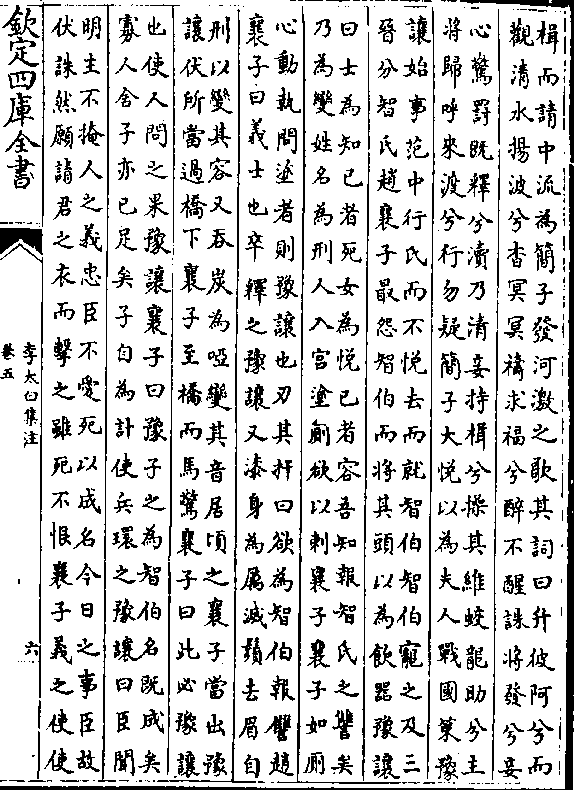 楫而請中流為簡子發河激之歌其詞曰升彼阿兮而
觀清水揚波兮杳冥冥禱求福兮醉不醒誅將發兮妾
心驚罰既釋兮瀆乃清妾持楫兮操其維蛟龍助兮主
將歸呼來渡兮行勿疑簡子大悅以為夫人戰國策豫
讓始事范中行氏而不悅去而就智伯智伯寵之及三
晉分智氏趙襄子最怨智伯而將其頭以為飲器豫讓
曰士為知己者死女為悅己者容吾知報智氏之讐矣
乃為變姓名為刑人入宮塗厠欲以刺襄子襄子如厠
心動執問塗者則豫讓也刃其扞曰欲為智伯報讐趙
襄子曰義士也卒釋之豫讓又漆身為厲滅鬚去眉自
刑以變其容又吞炭為啞變其音居頃之襄子當出豫
讓伏所當過橋下襄子至橋而馬驚襄子曰此必豫讓
也使人問之果豫讓襄子曰豫子之為智伯名既成矣
寡人舍子亦已足矣子自為計使兵環之豫讓曰臣聞
明主不掩人之義忠臣不愛死以成名今日之事臣故
伏誅然願請君之衣而擊之雖死不恨襄子義之使使
欽定四庫全書
李太白集注
卷五
六